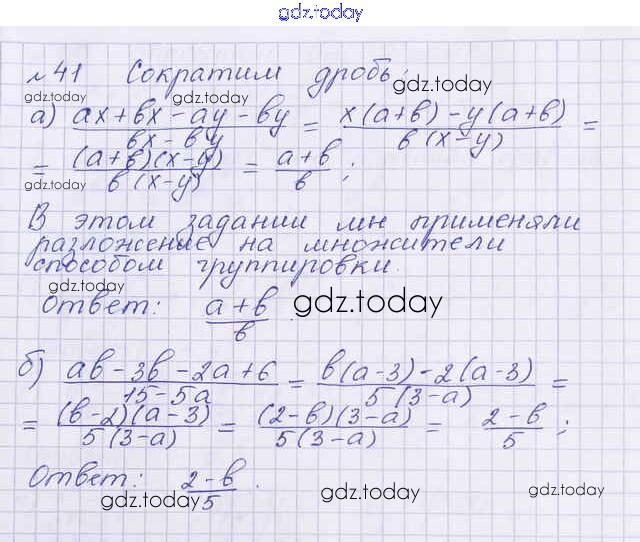 gdz.today
№41 Сократим дробь;
gdz.today
gdz.today gdz.today
а) (ax+bx-ay-by)/(bx-by) = (x(a+b)-y(a+b))/(b(x-y)) =
gdz.today gdz.today
= ((a+b)(x-y))/(b(x-y)) = (a+b)/b ;
gdz.today
В этом задании мн применяли
разложение на множители
способом группировки.
gdz.today
Ответ: (a+b)/b .
gdz.today
б) (ab-3b-2a+6)/(15-5a) = (b(a-3)-2(a-3))/(5(3-a)) =
= ((b-2)(a-3))/(5(3-a)) = ((2-b)(3-a))/(5(3-a)) = (2-b)/5 ;
Ответ: (2-b)/5 .
gdz.today gdz.today gdz.today